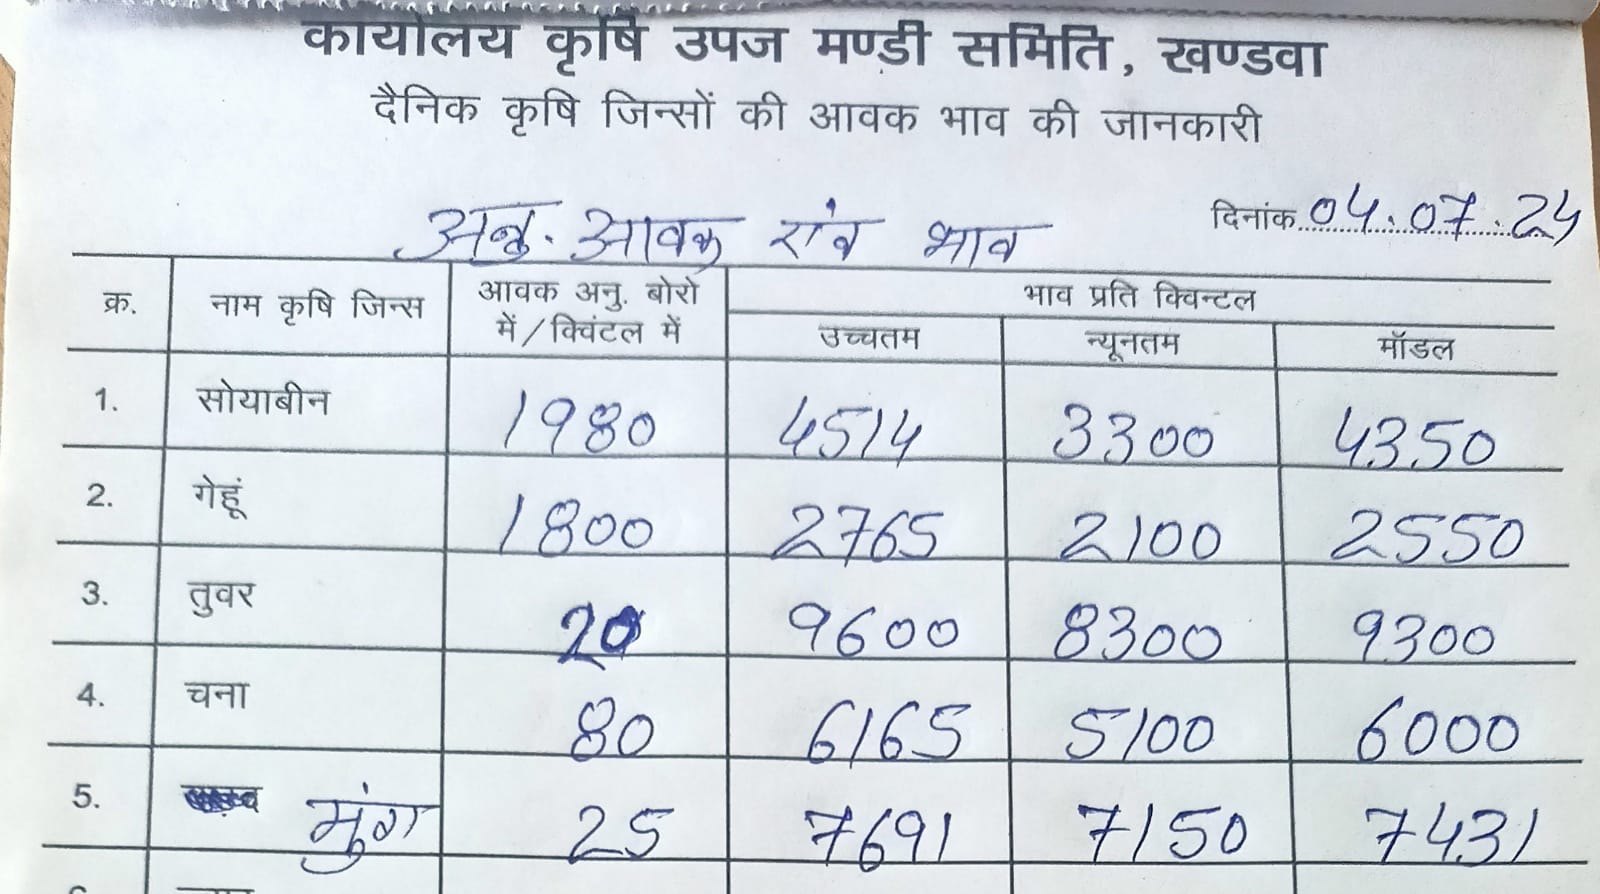 कार्यालय कृषि उपज मण्डी समिति, खण्डवा
दैनिक कृषि जिन्सों की आवक भाव की जानकारी
दिनांक 04.07.24
अनु. आवक एंव भाव
क्र. नाम कृषि जिन्स आवक अनु. बोरो में/क्विंटल में भाव प्रति क्विन्टल
उच्चतम न्यूनतम मॉडल
1. सोयाबीन 1980 4514 3300 4350
2. गेहूं 1800 2765 2100 2550
3. तुवर 20 9600 8300 9300
4. चना 80 6165 5100 6000
5. मुंग 25 7691 7150 7431